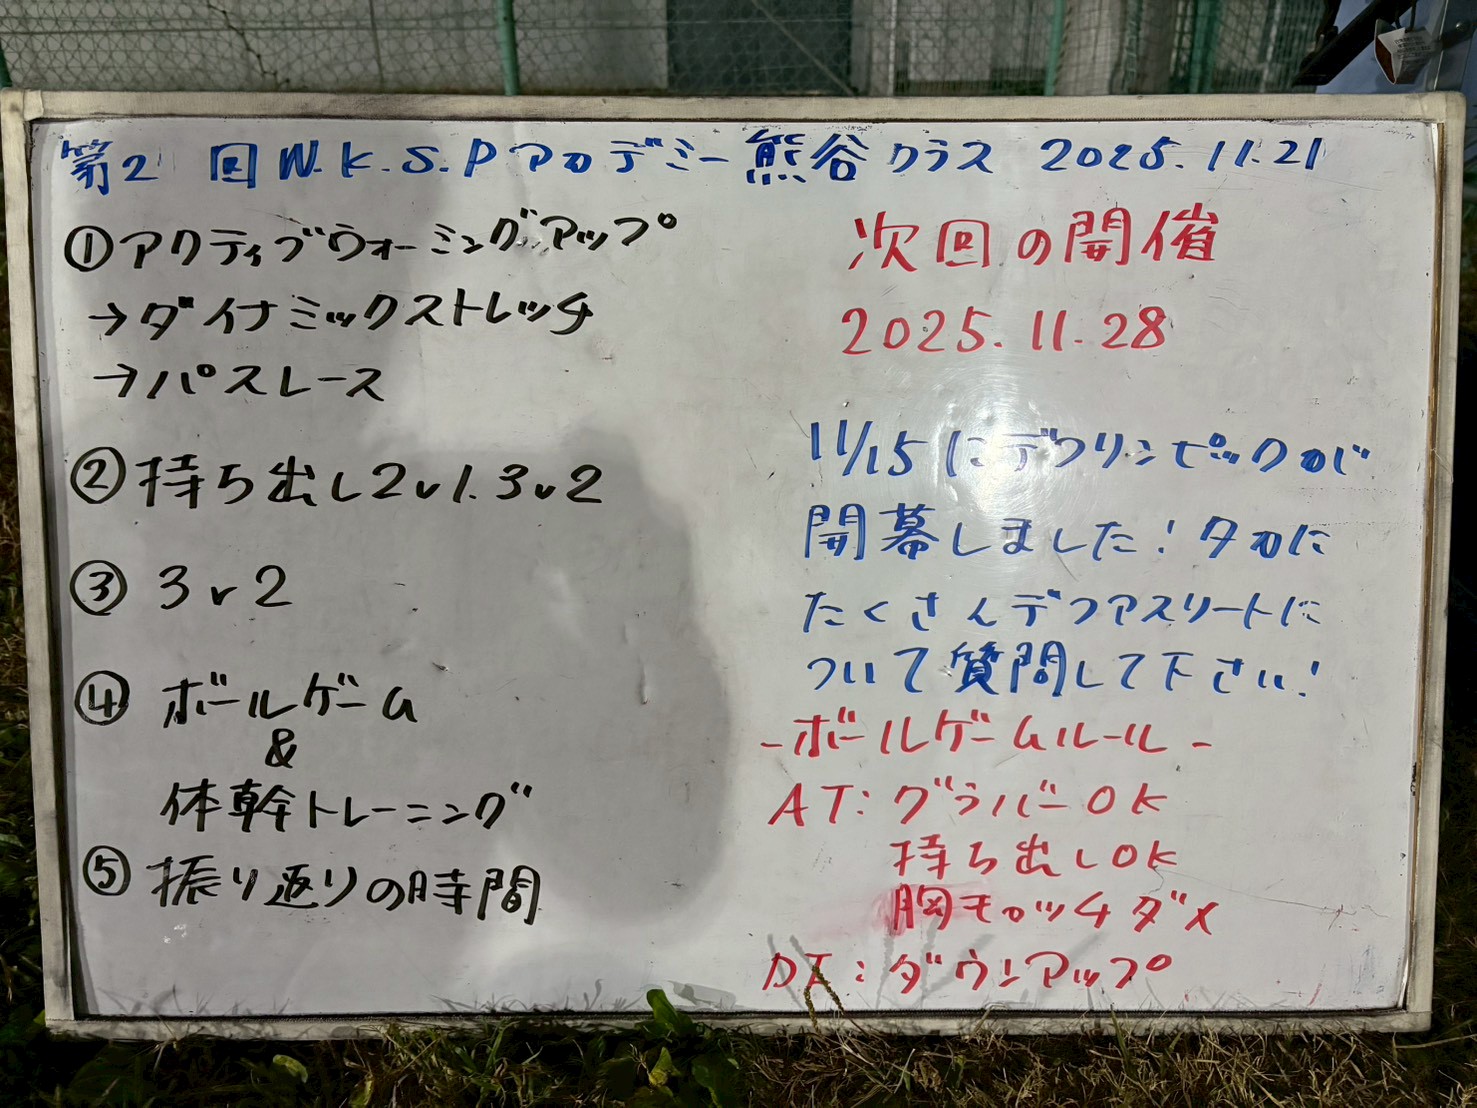 第2回 N.K.S.Pアカデミー熊谷クラス 2025.11.21
①アクティブウォーミングアップ
→ダイナミックストレッチ
→パスレース
②持ち出し2v1.3v2
③ 3v2
④ ボールゲーム
&
体幹トレーニング
⑤振り返りの時間
次回の開催
2025.11.28
11/15にデフリンピックが
開幕しました!タカに
たくさんデフアスリートに
ついて質問して下さい!
-ボールゲームルール-
AT:グラバーOK
持ち出しOK
胸キャッチダメ
DF:ダウンアップ